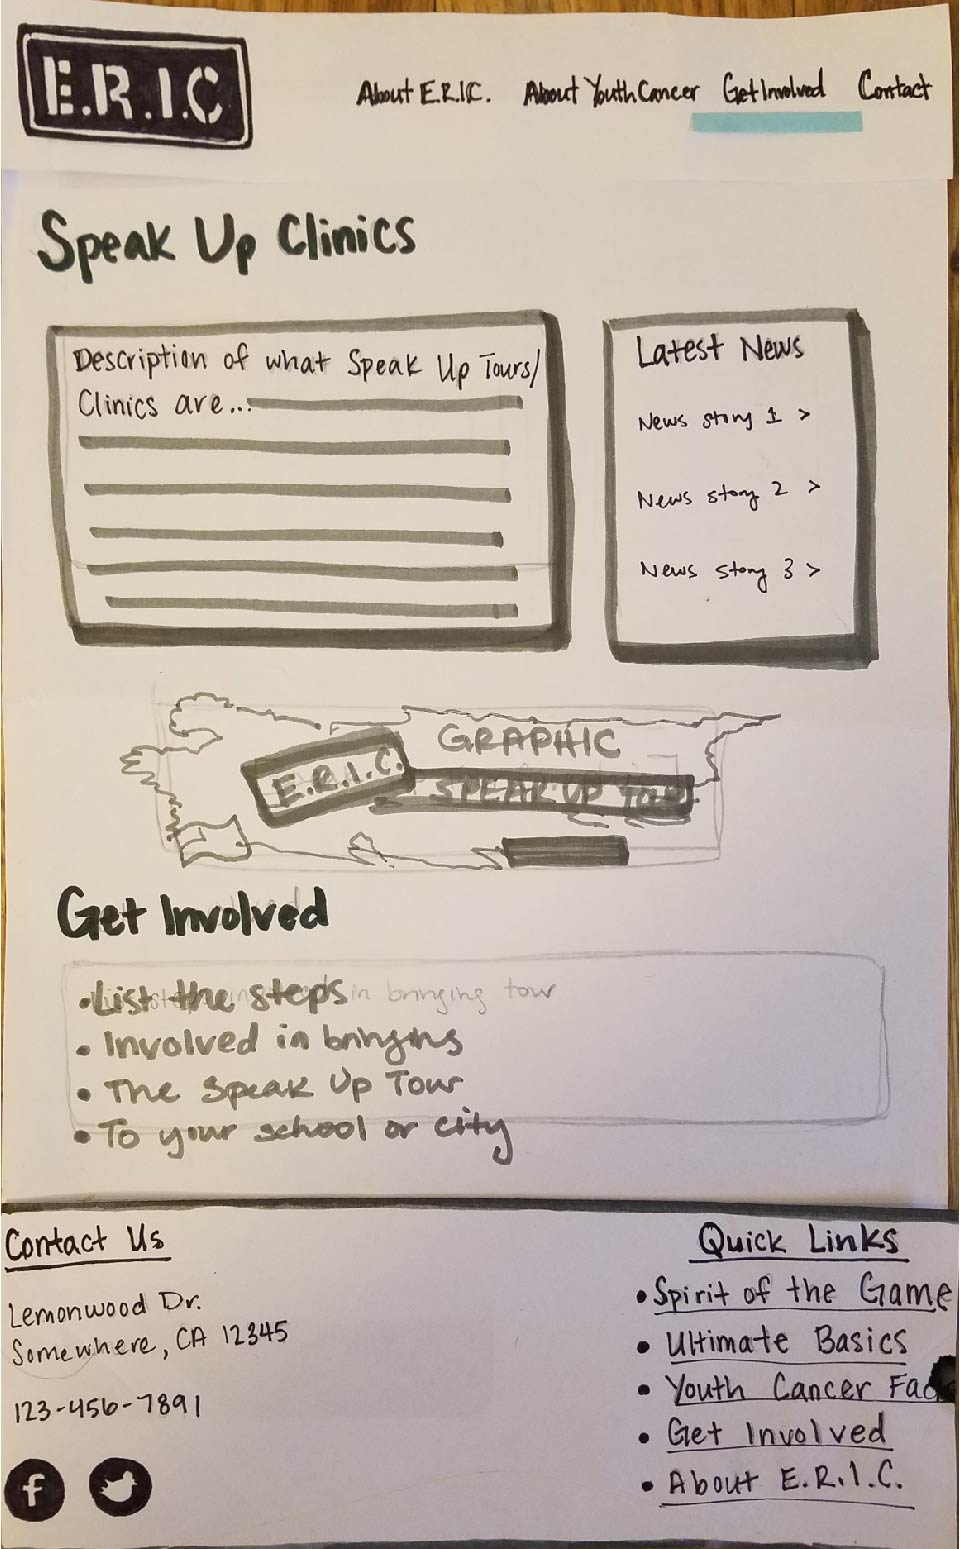 E.R.I.C
About E.R.I.C. About Youth Cancer Get Involved Contact
Speak Up Clinics
Description of what Speak Up Tours/
Clinics are...
Latest News
News story 1 >
News story 2 >
News story 3 >
GRAPHIC
E.R.I.C.
SPEAK UP TOUR
Get Involved
• List the steps
in bringing tour
• Involved in bringing
• The Speak Up Tour
• To your school or city
Contact Us
Lemonwood Dr.
Somewhere, CA 12345
123-456-7891
Quick Links
• Spirit of the Game
• Ultimate Basics
• Youth Cancer Fac
• Get Involved
• About E.R.I.C.